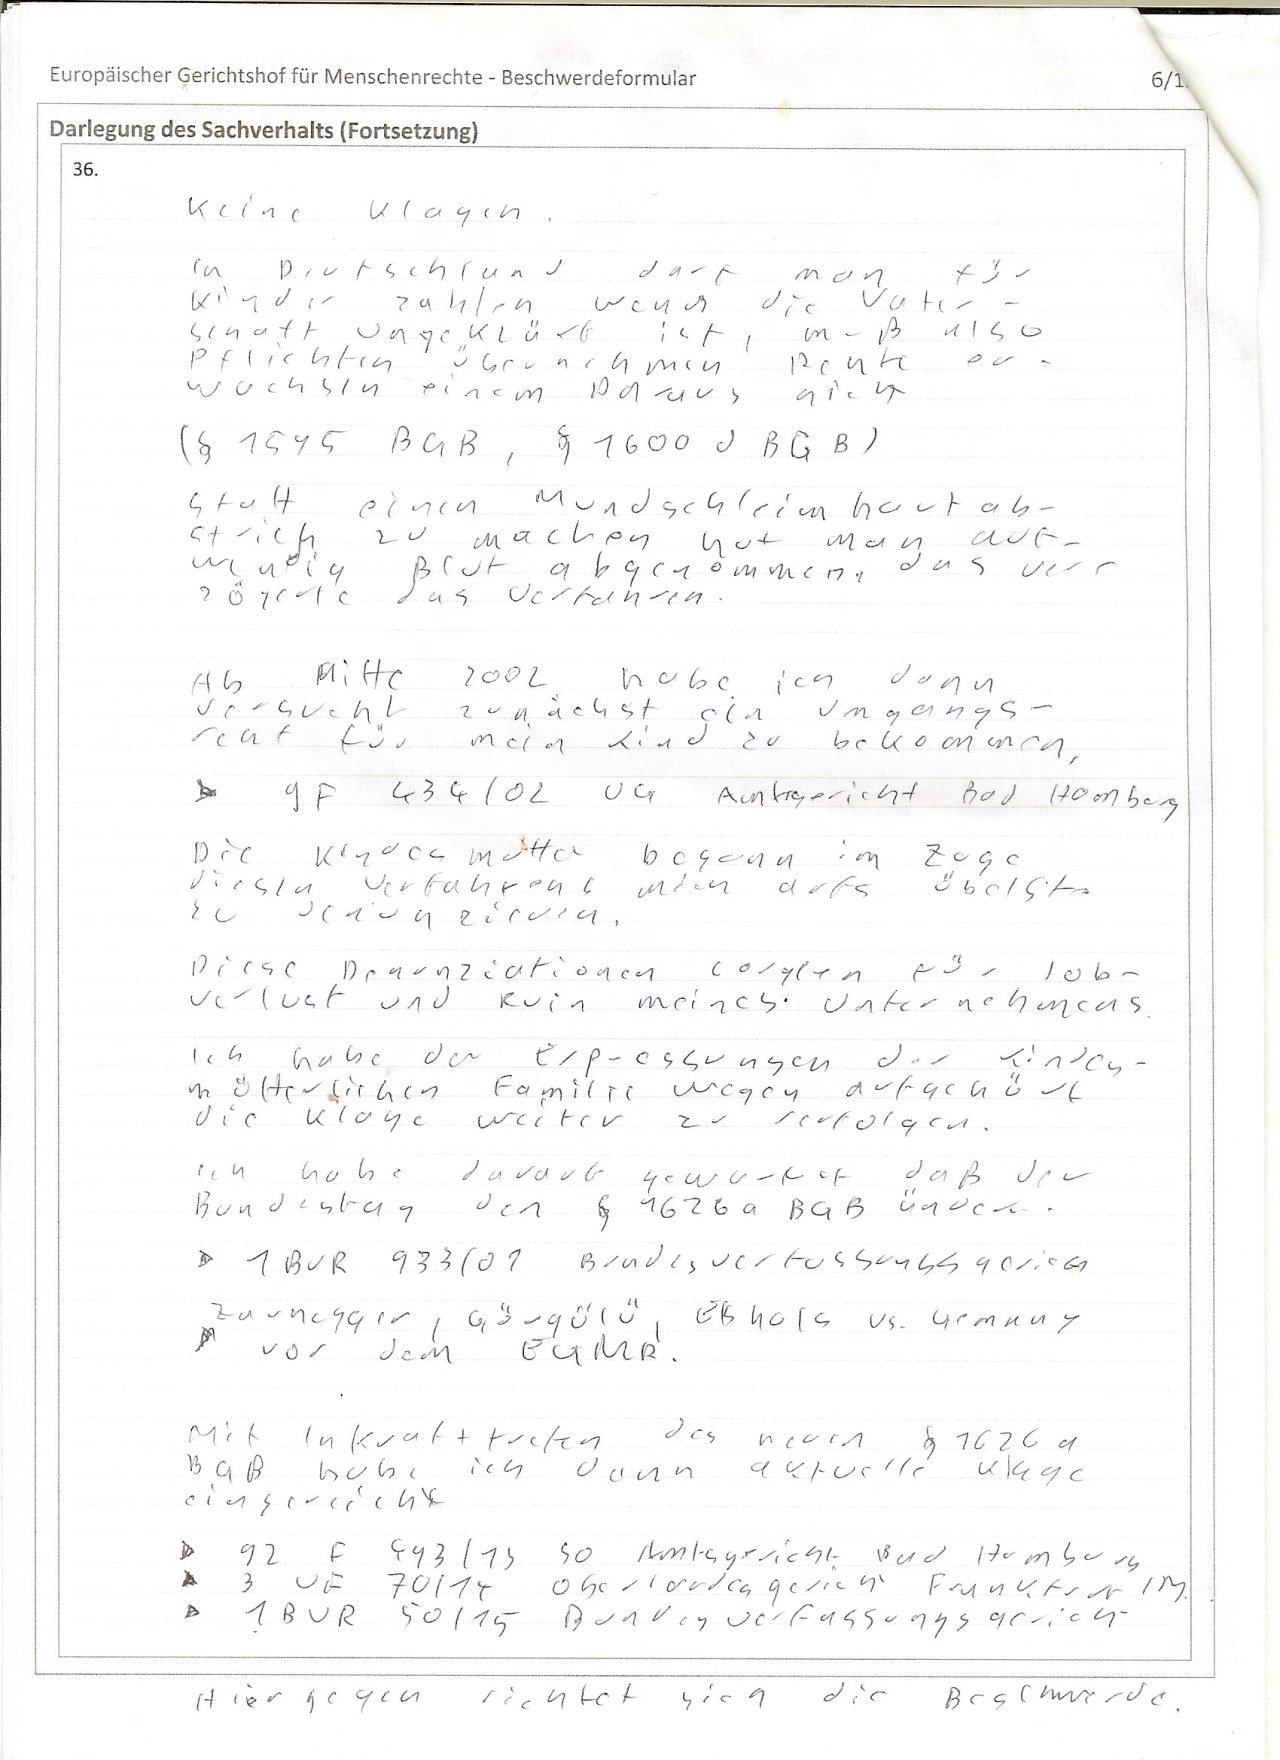 Europäischer Gerichtshof für Menschenrechte - Beschwerdeformular 6/1
Darlegung des Sachverhalts (Fortsetzung)
36.
Keine Klagen.
In Deutschland darf man für
Kinder zahlen wenn die Vater-
schaft ungeklärt ist, muß also
Pflichten übernehmen Rechte er-
wachsen einem Daraus nicht
(§ 1595 BGB, § 1600 d BGB)
Statt einen Mundschleimhautab-
strich zu machen hat man auf-
wendig Blut abgenommen, das ver-
zögerte das Verfahren.
Ab Mitte 2002 habe ich dann
versucht zunächst ein Umgangs-
recht für mein Kind zu bekommen,
9F 434/02 UG Amtsgericht Bad Homburg
Die Kindesmutter begann im Zuge
diesen Verfahrens mich aufs übelste
zu denunzieren.
Diese Denunziationen sorgten für Job-
verlust und Ruin meines Unternehmens.
Ich habe der Erpressungen der Kindes-
mütterlichen Familie wegen aufgehört
die Klage weiter zu verfolgen.
Ich habe darauf gewartet daß der
Bundestag den § 1626a BGB ändert.
1 BVR 933/01 Bundesverfassungsgericht
Zaunegger, Görgülü, Elsholz vs. Germany
vor dem EGMR.
Mit Inkrafttreten des neuen § 1626a
BGB habe ich dann aktuelle Klage
eingereicht
92 F 493/13 SO Amtsgericht Bad Homburg
3 UF 70/14 Oberlandesgericht Frankfurt /M.
1 BVR 50/15 Bundesverfassungsgericht
Hiergegen richtet sich die Beschwerde.